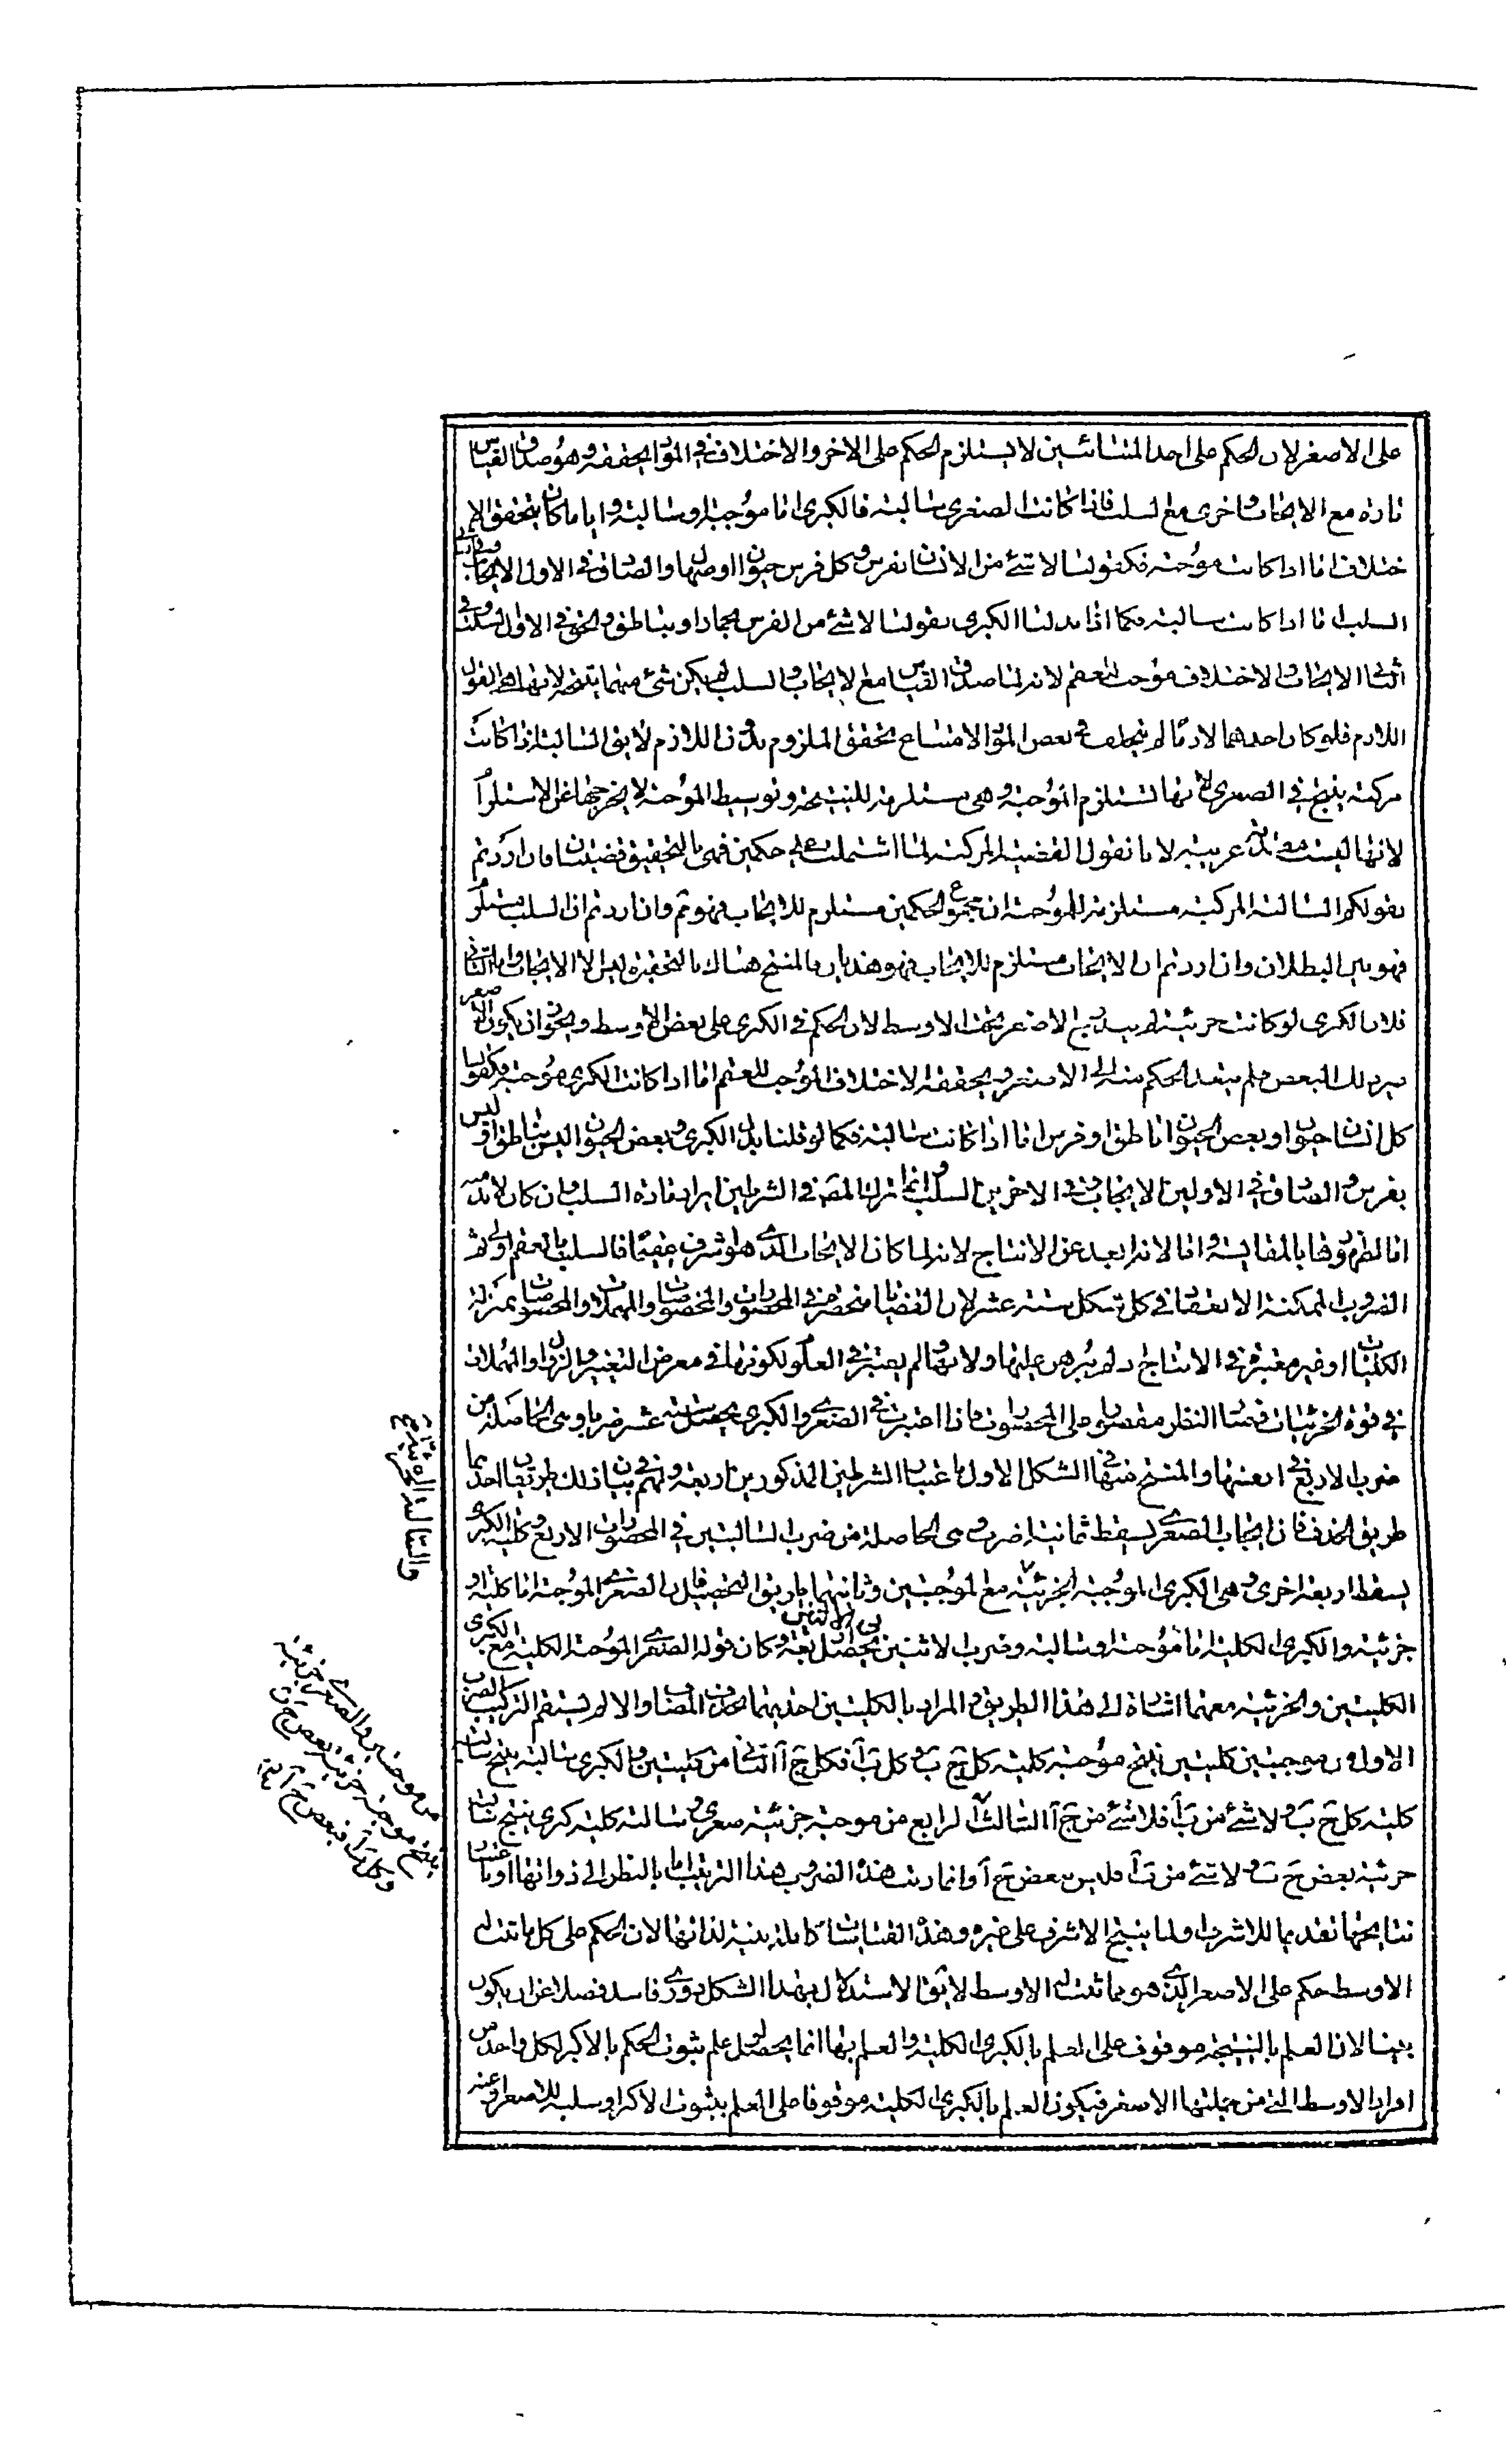 على الاصغر لان الحكم على احد المتباينين لا يستلزم الحكم على الاخر والاختلاف في المواد يحققه وهو صدق القياس
تارة مع الايجاب واخرى مع السلب فاذا كانت الصغرى سالبة فالكبرى اما موجبة او سالبة وايا ما كان يتحقق الا
ختلاف اما اذا كانت موجبة فكقولنا لا شئ من الانسان بفرس وكل فرس حيوان او صهال والصادق في الاول الايجاب وفي الثاني
السلب اما اذا كانت سالبة فكما اذا بدلنا الكبرى بقولنا لا شئ من الفرس بجماد او بناطق والحق في الاول السلب وفي
الثاني الايجاب والاختلاف موجب للعقم لانه لما صدق القياس مع الايجاب والسلب لم يكن شئ منهما بنتيجة لانها القول
اللازم فلو كان احدهما لازما لم يتخلف في بعض المواد لامتناع تحقق الملزوم بدون اللازم لا يق السالبة اذا كانت
مركبة ينتج في الصغرى لانها تستلزم الموجبة وهي مستلزمة للنتيجة وتوسيط الموجبة لا يخرجها عن الاستلزام
لانها ليست مقدمة غريبة لانا نقول القضية المركبة لما اشتملت على حكمين فهي بالتحقيق قضيتان فان اردتم
بقولكم السالبة المركبة مستلزمة للموجبة ان مجموع الحكمين مستلزم للايجاب فهو تم وان اردتم ان السلب مستلزم
فهو بين البطلان وان اردتم ان الايجاب مستلزم للايجاب فهو هذيان فالمنتج هناك بالحقيقة ليس الا الايجاب واما الثاني
فلان الكبرى لو كانت جزئية لم يندرج الاصغر تحت الاوسط لان الحكم في الكبرى على بعض الاوسط ويجوز ان يكون الاصغر
غير ذلك البعض فلم يتعد الحكم منه الى الاصغر ويحققه الاختلاف الموجب للعقم اما اذا كانت الكبرى موجبة فكقولنا
كل انسان حيوان وبعض الحيوان ناطق او فرس اما اذا كانت سالبة فكما لو قلنا بدل الكبرى وبعض الحيوان ليس بناطق او ليس
بفرس والصادق في الاولين الايجاب وفي الاخرين السلب وانما ترك المص في الشرطين ايراد مادة السلب وان كان لا بد منه
اما لظهورها بالمقايسة واما لانه ابعد عن الانتاج لانه لما كان الايجاب الذي هو اشرف عقيما فالسلب بالعقم اولى ثم
الضروب الممكنة الانعقاد في كل شكل ستة عشر لان القضايا منحصرة في المحصورات والمخصوصات والمهملات والمخصوصات بمنزلة
الكليات او غير معتبرة في الانتاج ولم يبرهن عليها ولانها لم يعتبر في العلوم لكونها في معرض التغير والزوال والمهملات
في قوة الجزئيات فصار النظر مقصورا على المحصورات فاذا اعتبرت في الصغرى والكبرى يحصل ستة عشر ضربا وهي الحاصلة من
ضرب الاربع في اربعتها والمنتج منها في الشكل الاول باعتبار الشرطين المذكورين اربعة ولهم في بيان ذلك طريقان احدهما
طريق الحذف فان ايجاب الصغرى يسقط ثمانية اضرب وهي الحاصلة من ضرب السالبتين في المحصورات الاربع وكلية الكبرى
يسقط اربعة اخرى وهي الكبرى الموجبة الجزئية مع الموجبتين وثانيهما طريق التحصيل فان الصغرى الموجبة اما كلية او
والسالبة الجزئية مع
جزئية والكبرى الكلية اما موجبة او سالبة وضرب الاثنين في الاثنين يحصل اربعة وكان قوله الصغرى الموجبة الكلية مع الكبرى
الكليتين والجزئية معهما اشارة الى هذا الطريق والمراد بالكليتين احديهما بحذف المضاف والا لم يستقم التركيب الضرب
الاول من موجبتين كليتين ينتج موجبة كلية كل ج ب وكل ب آ فكل ج آ الثاني من كليتين والكبرى سالبة ينتج سالبة
كلية كل ج ب ولا شئ من ب آ فلا شئ من ج آ الثالث الرابع من موجبة جزئية صغرى وسالبة كلية كبرى ينتج سالبة
من موجبتين والصغرى جزئية
ينتج موجبة جزئية بعض ج ب
وكل ب آ فبعض ج آ
جزئية بعض ج ب ولا شئ من ب آ فليس بعض ج آ وانما رتبت هذه الضروب هذا الترتيب اما بالنظر الى ذواتها او باعتبار
نتايجها تقديما للاشرف ولما ينتج الاشرف على غيره وهذه القياسات كاملة بينة لذاتها لان الحكم على كل ما ثبت له
الاوسط حكم على الاصغر الذي هو مما ثبت له الاوسط لا يق الاستدلال بهذا الشكل دوري فاسد فضلا عن ان يكون
بينا لان العلم بالنتيجة موقوف على العلم بالكبرى الكلية والعلم بها انما يحصل لو علم ثبوت الحكم بالاكبر لكل واحد من
افراد الاوسط التي من جملتها الاصغر فيكون العلم بالكبرى الكلية موقوفا على العلم بثبوت الاكبر او سلبه للاصغر او عنه